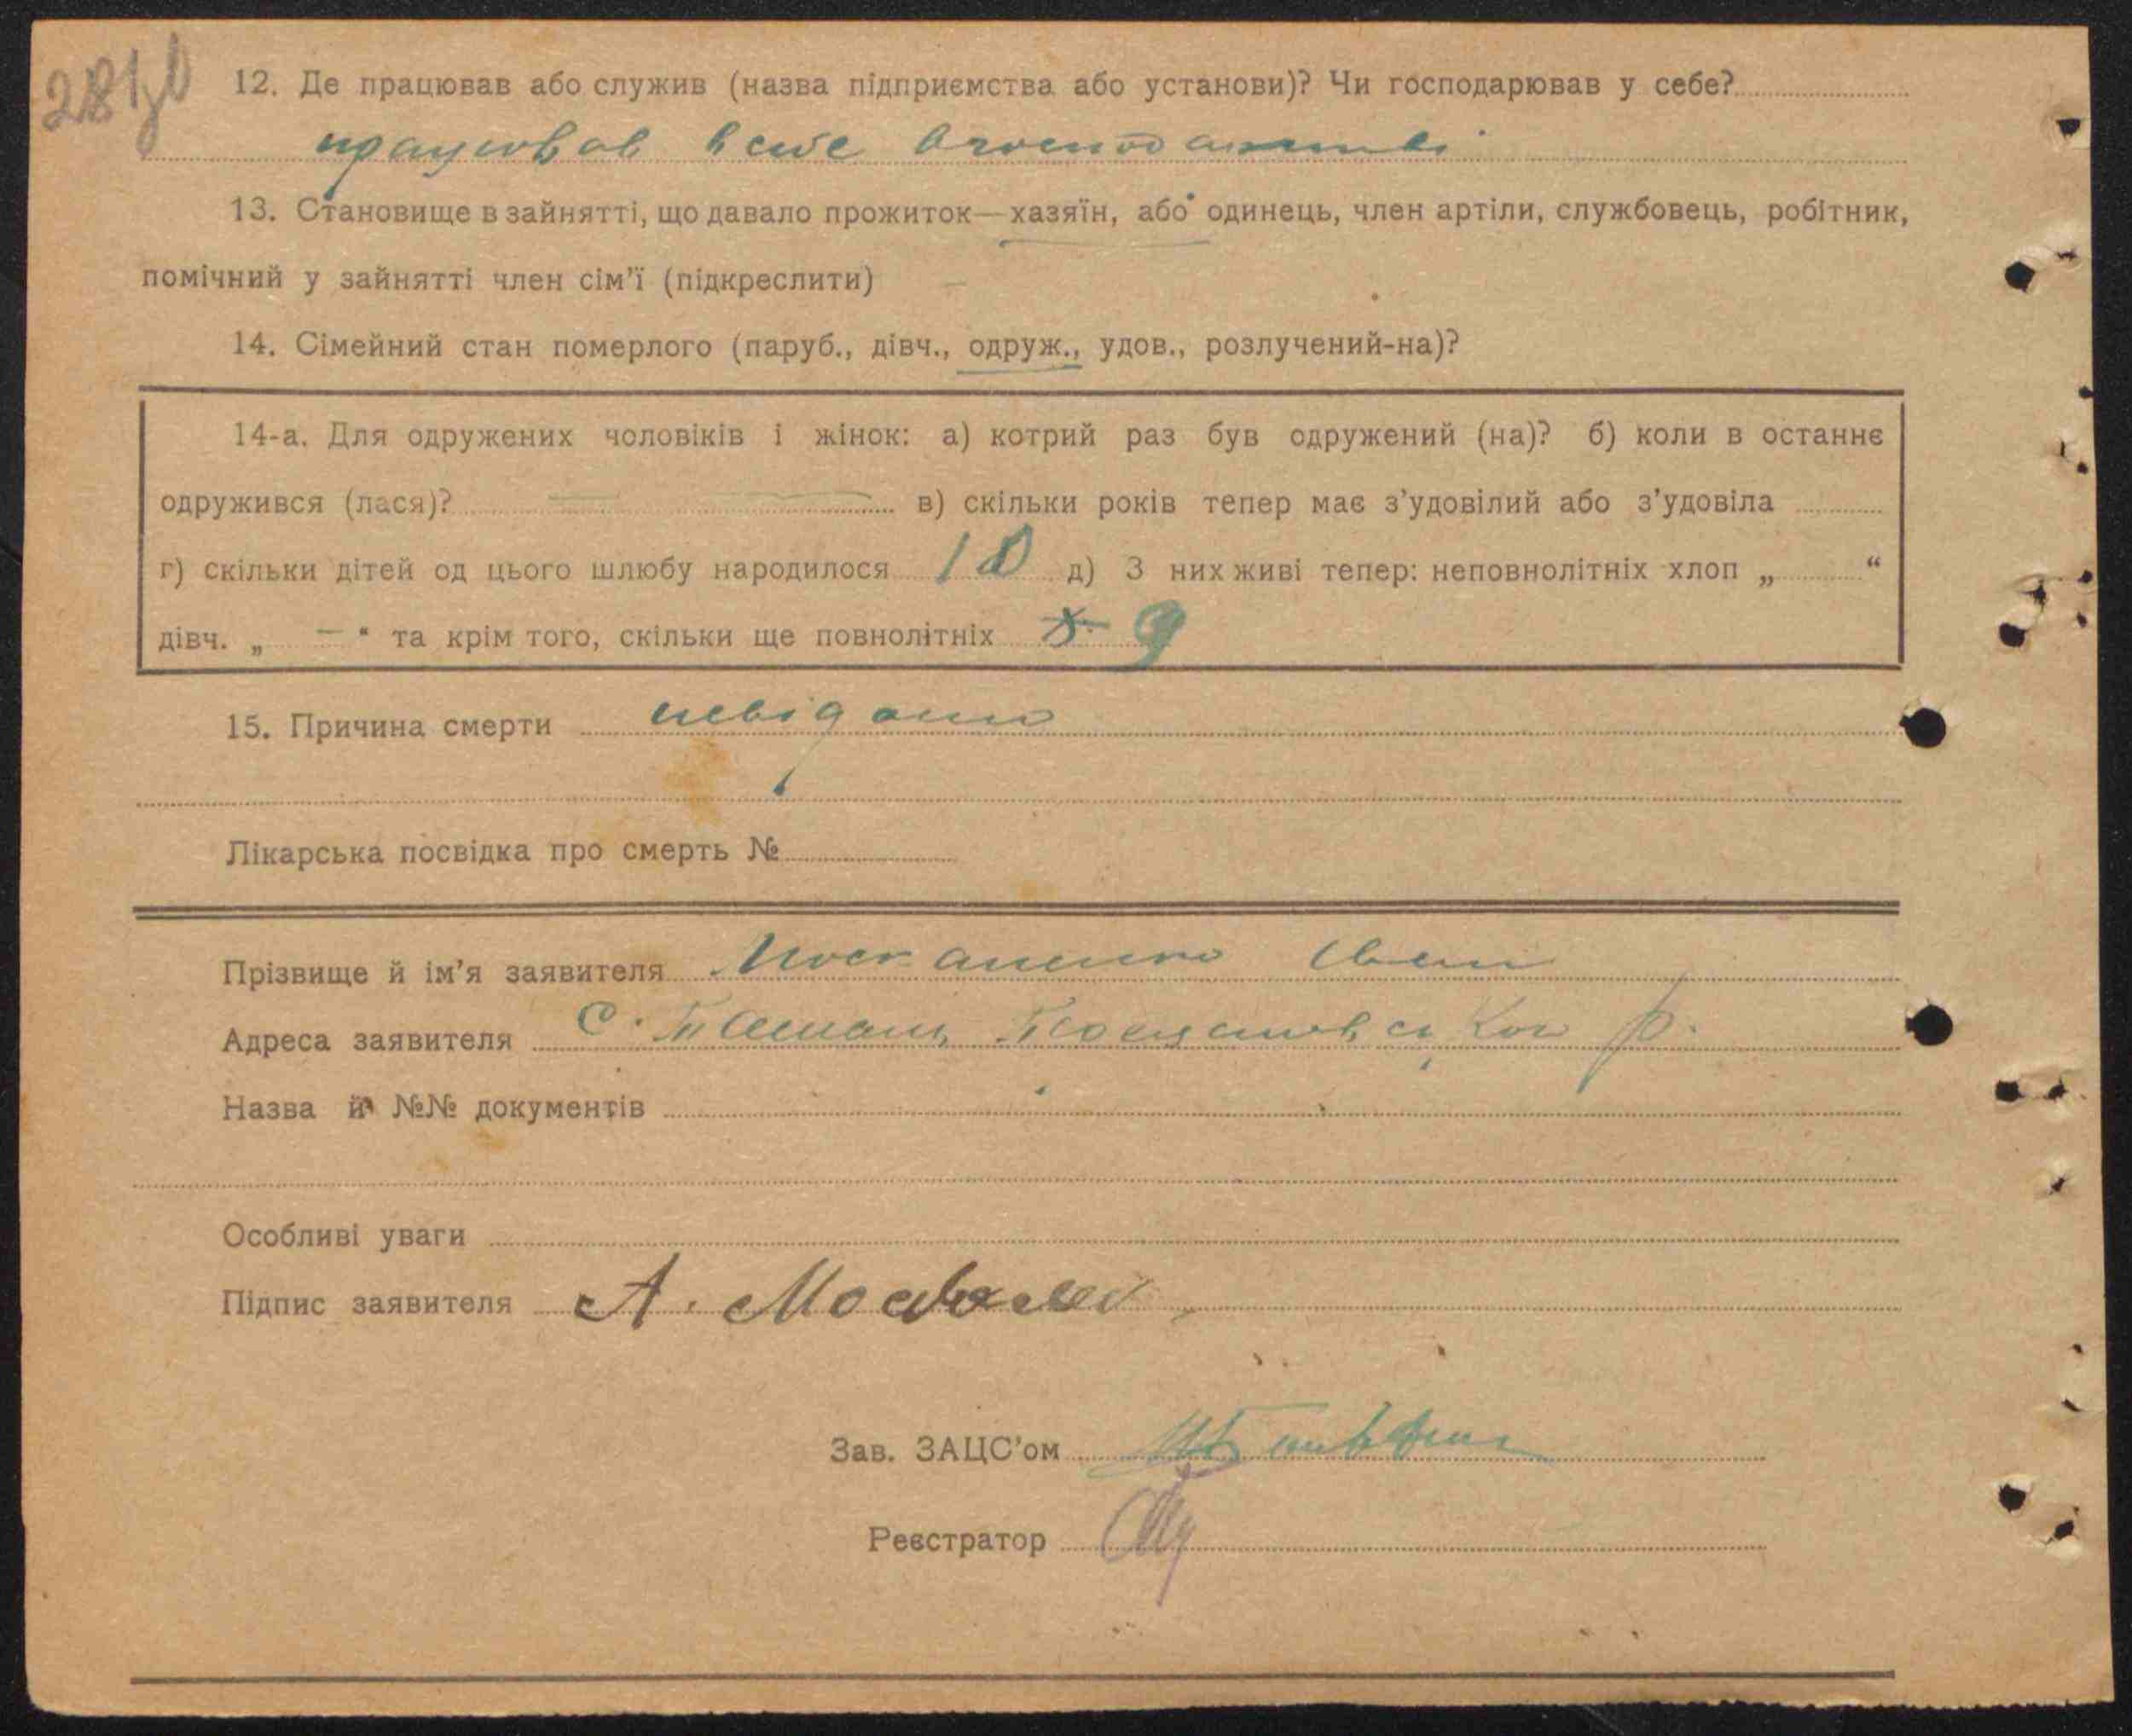 12. Де працював або служив (назва підприємства або установи)? Чи господарював у себе?
працював в себе в господарстві
13. Становище в зайнятті, що давало прожиток—хазяїн, або одинець, член артіли, службовець, робітник,
помічний у зайнятті член сім'ї (підкреслити)
14. Сімейний стан померлого (паруб., дівч., одруж., удов., розлучений-на)?
14-а. Для одружених чоловіків і жінок: а) котрий раз був одружений (на)? б) коли в останнє
одружився (лася)? — — в) скільки років тепер має з'удовілий або з'удовіла
г) скільки дітей од цього шлюбу народилося 10 д) З них живі тепер: неповнолітніх хлоп „ “
дівч. „ — “ та крім того, скільки ще повнолітніх 9
15. Причина смерти невідомо
Лікарська посвідка про смерть №
Прізвище й ім'я заявителя
Адреса заявителя с. р.
Назва й №№ документів
Особливі уваги
Підпис заявителя А.
Зав. ЗАЦС'ом
Реєстратор